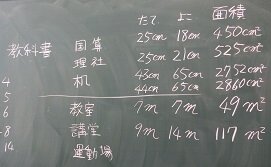 たて よこ 面積
教科書 国算 25cm 18cm 450cm²
理社 25cm 21cm 525cm²
4 机 43cm 65cm 2752cm²
5 44cm 65cm 2860cm²
6 教室 7m 7m 49m²
8 講堂 9m 14m 117m²
14 運動場